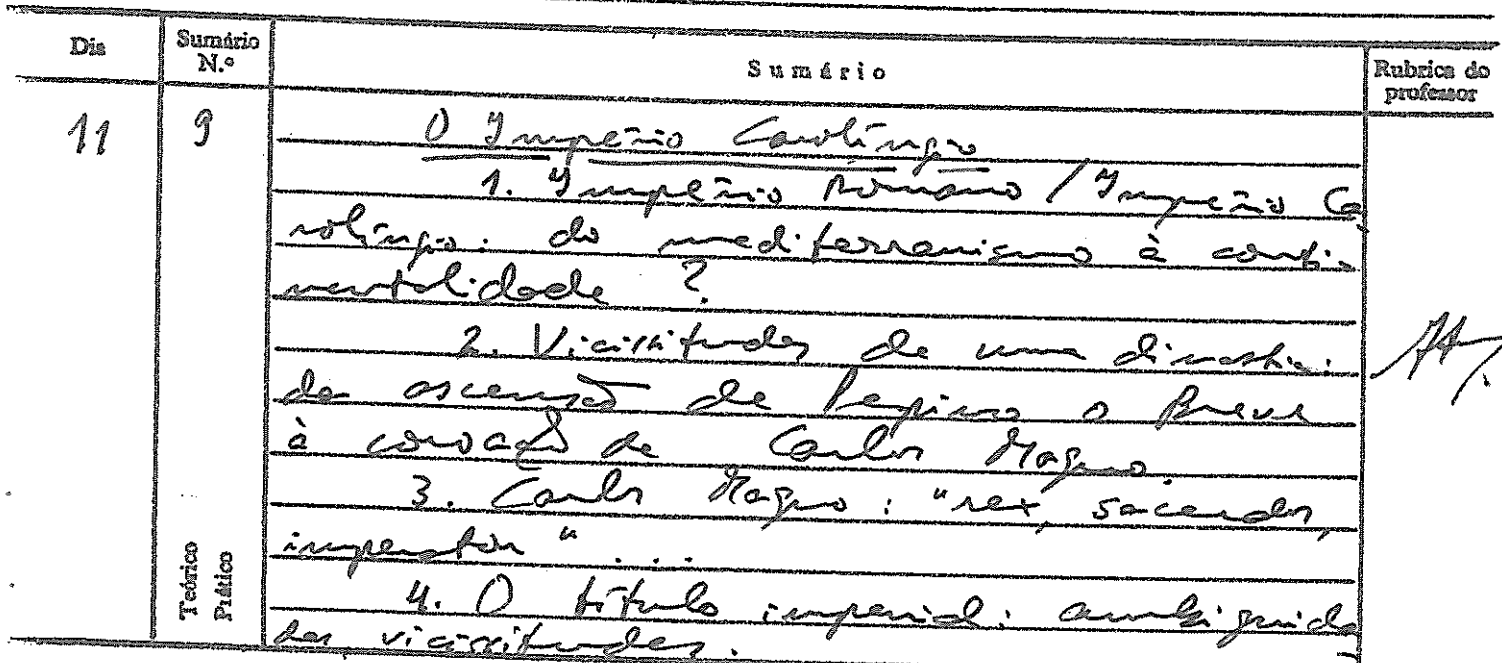 Dia
Sumário N.º
Sumário
Rubrica do professor
11
9
O Império Carolíngio
1. Império Romano / Império Ca
rolíngio: do mediterranismo à conti-
nentalidade ?
2. Vicissitudes de uma dinastia:
da ascensão de Pepino o Breve
à coroação de Carlos Magno.
3. Carlos Magno: "rex, sacerdos,
imperator" ...
4. O título imperial: ambiguida
des, vicissitudes.
Teórico
Prático